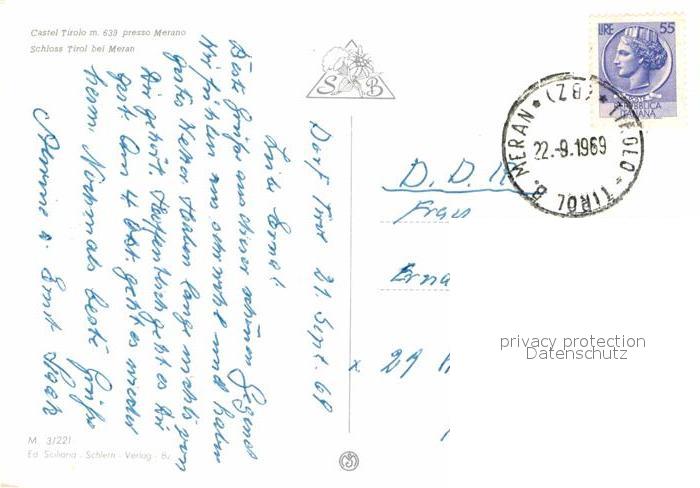 Castel Tirolo m. 639 presso Merano
Schloss Tirol bei Meran
S B
LIRE 55
REPUBBLICA
ITALIANA
TIROLO - TIROL B. MERAN * (BZ) *
22.-9.1969
Dorf Tirol 21. Sept. 69
Liebe Erna!
Beste Grüße aus dieser schönen Gegend
Wir fühlen uns sehr wohl und haben
gutes Wetter. Haben lange nichts von
Dir gehört. Hoffentlich geht es Dir
gut. Am 4. Okt. geht es wieder
heim. Nochmals beste Grüße
D. D. R.
Frau
Erna
x 29
privacy protection
Datenschutz
M 3/221
Ed. Siciliana - Schlern - Verlag - Bz